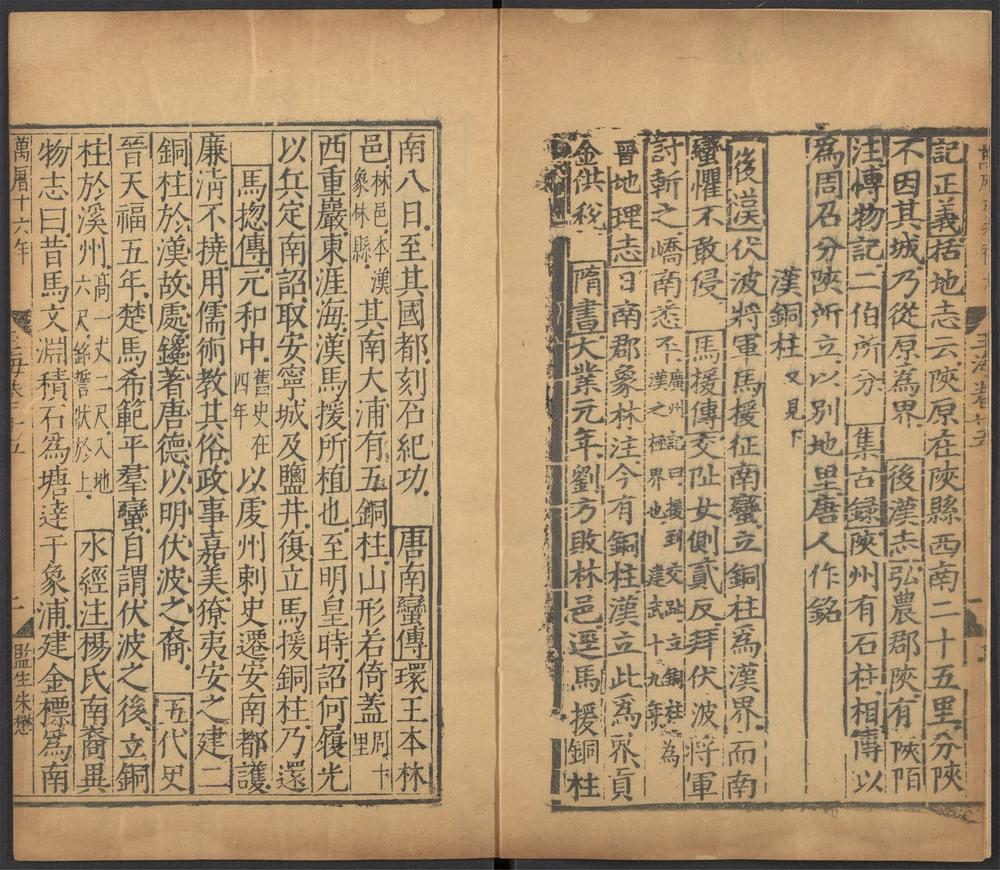 記正義括地志云陝原在陝縣西南二十五里分陝
不因其城乃從原爲界 後漢志弘農郡陝有陝陌
注博物記二伯所分 集古録陝州有石柱相傳以
爲周召分陝所立以別地里唐人作銘
漢銅柱 又見下
後漢伏波將軍馬援征南蠻立銅柱爲漢界而南
蠻懼不敢侵 馬援傳交阯女側貳反拜伏波將軍
討斬之嶠南悉平 廣州記曰援到交趾立銅柱爲漢之極界也建武十九年
晉地理志日南郡象林注今有銅柱漢立此爲界貢
金供稅 隋書大業元年劉方敗林邑逕馬援銅柱
南八日至其國都刻石紀功 唐南蠻傳環王本林
邑 林邑本漢象林縣 其南大浦有五銅柱山形若倚蓋周十里
西重巖東涯海漢馬援所植也至明皇時詔何履光
以兵定南詔取安寧城及鹽井復立馬援銅柱乃還
馬揔傳元和中 舊史在四年 以虔州刺史遷安南都護
廉淸不撓用儒術教其俗政事嘉美獠夷安之建二
銅柱於漢故處鑱著唐德以明伏波之裔 五代史
晉天福五年楚馬希範平羣蠻自謂伏波之後立銅
柱於溪州 高一丈二尺入地六尺銘誓狀於上 水經注楊氏南裔異
物志曰昔馬文淵積石爲塘達于象浦建金標爲南
萬曆十六年
玉海卷二十五
監生朱懋